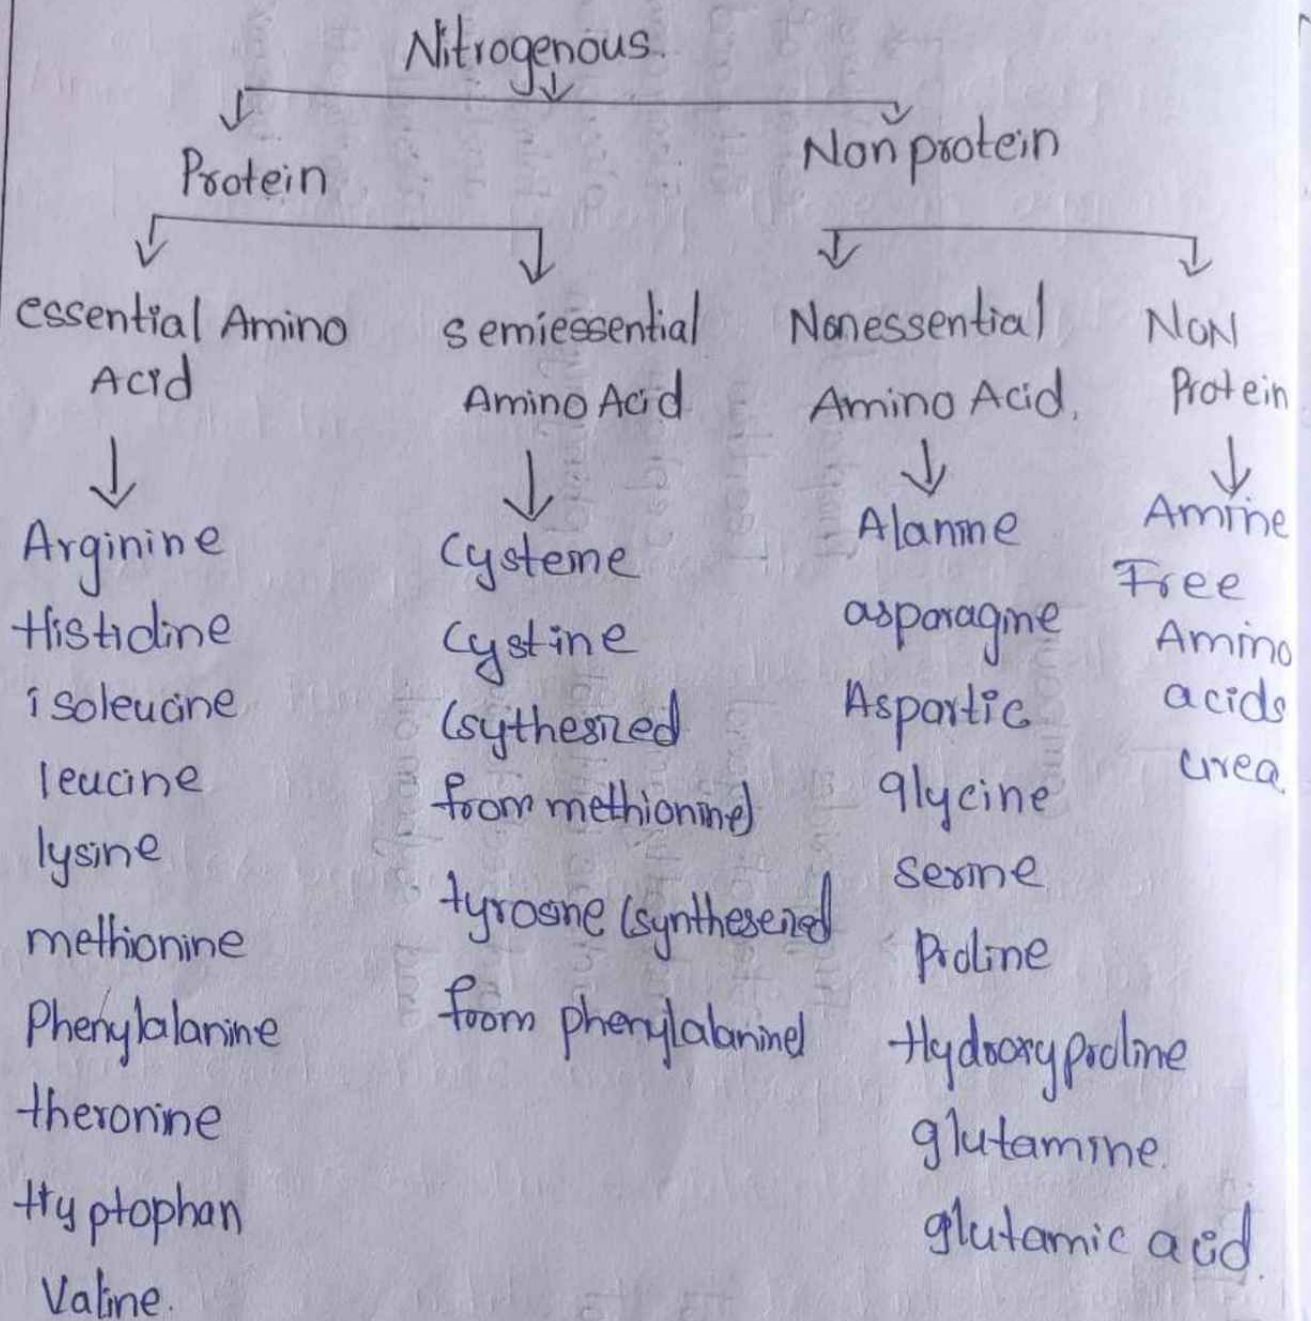 Nitrogenous.
Protein
Non protein
essential Amino
Acid
Arginine
Histidine
isoleucine
leucine
lysine
methionine
Phenylalanine
theronine
tryptophan
Valine.
semiessential
Amino Acid
Cysteine
Cystine
(sythesized
from methionine)
tyrosine (syntheseized
from phenylalanine)
Nonessential
Amino Acid.
Alanine
asparagine
Aspartic
glycine
serine
Proline
Hydroxyproline
glutamine.
glutamic acid.
NON
Protein
Amine
Free
Amino
acids
urea